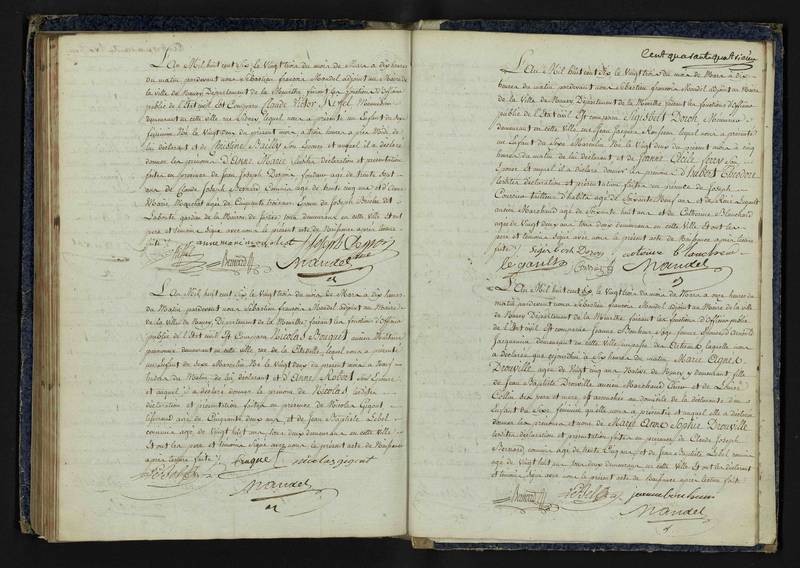 L'An Mil huit cent dix le Vingt trois du mois de Mars a dix heures
du matin pardevant nous Sébastien francois Mandel adjoint au Maire de
la Ville de Nancy Département de la Meurthe faisant les fonctions d'officier
public de l'Etat civil Est Comparu Claude Victor Menuisier
demeurant en cette ville rue lequel nous a présenté un Enfant du Sexe
féminin Né le Vingt deux du présent mois a trois heures après Midi de
lui déclarant et de Nicolas Bailly Son Epouse et auquel il a déclaré
donner les prénoms D'Anne Marie Lesdites déclaration et présentation
faites en présence de Jean Joseph age de trente Sept
ans de Claude Joseph Bernard Commis age de trente cinq ans et d'Anne
Marie agée de Cinquante trois ans Epouse de Joseph
garde de la Maison de tous demeurans en cette Ville Et ont les
père et témoins Signé avec nous le présent acte de Naissance après lecture
faite
Bernard Mandel
L'An Mil huit cent dix le Vingt trois du mois de Mars a dix heures
du Matin pardevant nous Sébastien francois Mandel adjoint au Maire de
la Ville de Nancy Département de la Meurthe faisant les fonctions d'officier
public de l'Etat civil Est Comparu Nicolas Bouquet ancien Militaire
pensionné demeurant en cette ville rue de la Citadelle lequel nous a présenté
un Enfant du Sexe Masculin Né le Vingt deux du présent mois a neuf
heures du Matin de lui déclarant et D'Anne Robert Son Epouse
et auquel il a déclaré donner le prénom de Nicolas lesdites
déclaration et présentation faites en présence de Nicolas Gigout
age de Cinquante deux ans et de Jean Baptiste Lebel
commis age de Vingt huit ans tous deux demeurans en cette Ville
Et ont les père et témoins Signé avec nous le présent acte de Naissance
après lecture faite
nicolas gigout
Mandel
Cent quarante quatrième
L'An Mil huit cent dix le Vingt trois du mois de Mars a dix
heures du matin pardevant nous Sébastien francois Mandel adjoint au Maire
de la Ville de Nancy Département de la Meurthe faisant les fonctions d'officier
public de l'Etat civil Est comparu Sigisbert Menuisier
demeurant en cette Ville rue lequel nous a présenté
un Enfant du Sexe Masculin Né le Vingt deux du présent mois a cinq
heures du matin de lui déclarant et de Jeanne Cécile ferry Son
Epouse Et auquel il a déclaré donner les prénoms D'hubert Théodore
lesdites déclaration et présentation faites en présence de Joseph
age de Soixante Neuf ans et de Legault
ancien Marchand age de Soixante huit ans et de Catherine Blanchard
agée de Vingt deux ans tous deux demeurans en cette Ville Et ont les
père et témoins Signé avec nous le présent acte de Naissance après lecture
faite
le gault Mandel
L'An Mil huit cent dix le Vingt trois du mois de Mars a onze heures du
matin pardevant nous Sébastien francois Mandel adjoint au Maire de la Ville
de Nancy Département de la Meurthe faisant les fonctions d'officier public
de l'Etat civil Est comparue Jeanne Sage femme
demeurant en cette Ville laquelle nous
a déclaré que aujourdhui a Six heures du matin Marie Agnes
Drouville agée de Vingt cinq Native de Nancy y demeurant fille
de Jean Baptiste Drouville ancien Marchand et de Louise
Collin Ses père et mere est accouchée au domicile de la déclarante d'un
Enfant du Sexe féminin qu'elle nous a présenté et auquel elle a déclaré
donner les prénoms et nom de Marie Anne Sophie Drouville
lesdites déclaration et présentation faites en présence de Claude Joseph
Bernard commis age de trente Cinq ans Et de Jean Baptiste Lebel commis
age de Vingt huit ans tous deux demeurans en cette Ville Et ont la déclarante
et témoins Signé avec nous le présent acte de Naissance après lecture faite
Bernard
Mandel